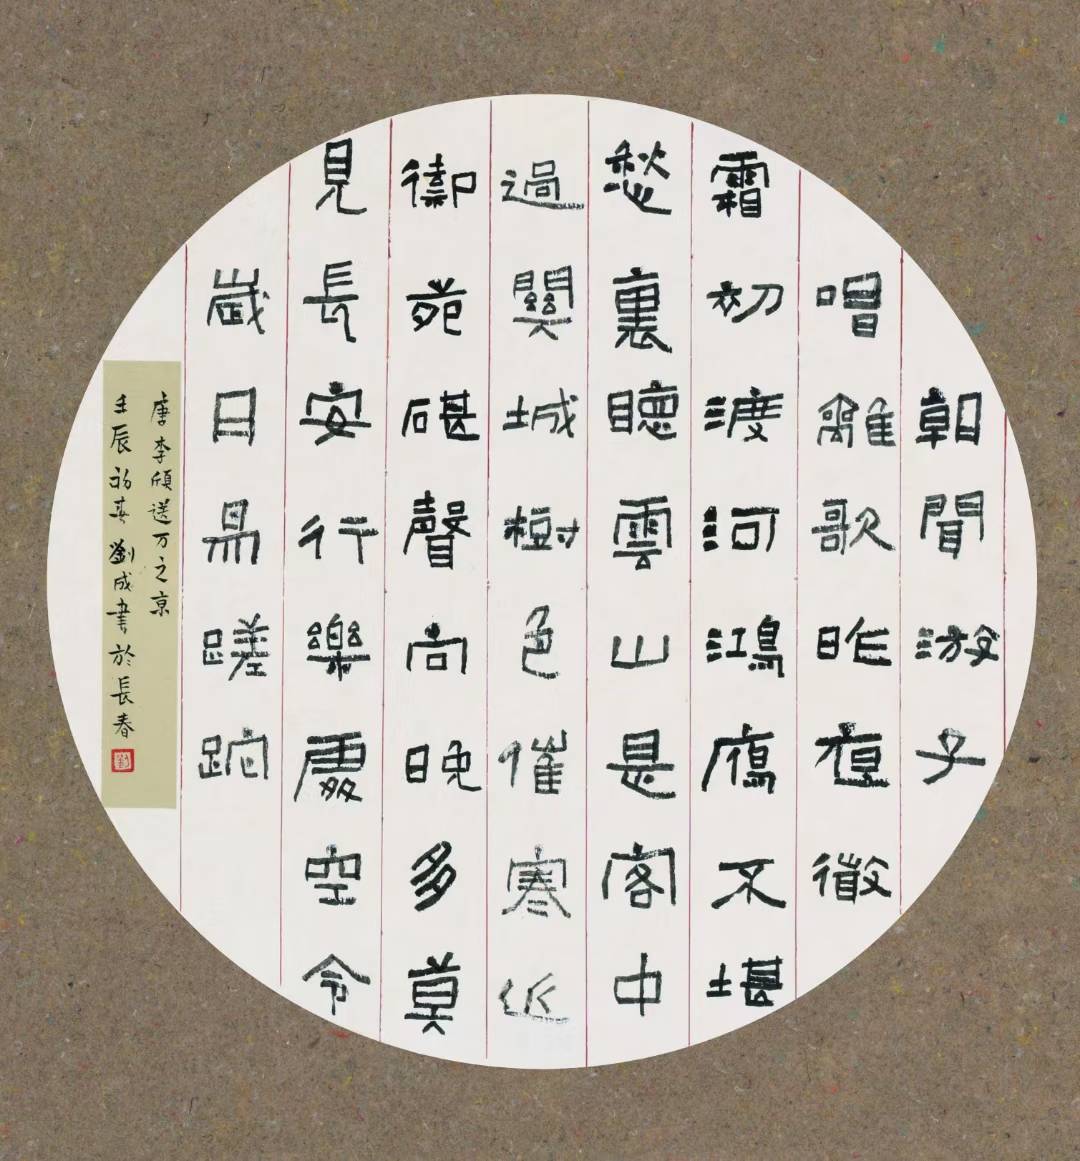 朝聞游子
唱離歌昨夜微
霜初渡河鴻鴈不堪
愁裏聽雲山是客中
過關城樹色催寒近
御苑碪聲向晚多莫
見長安行樂處空令
歲日易蹉跎
唐李頎送万之京
壬辰初春劉成書於長春
劉